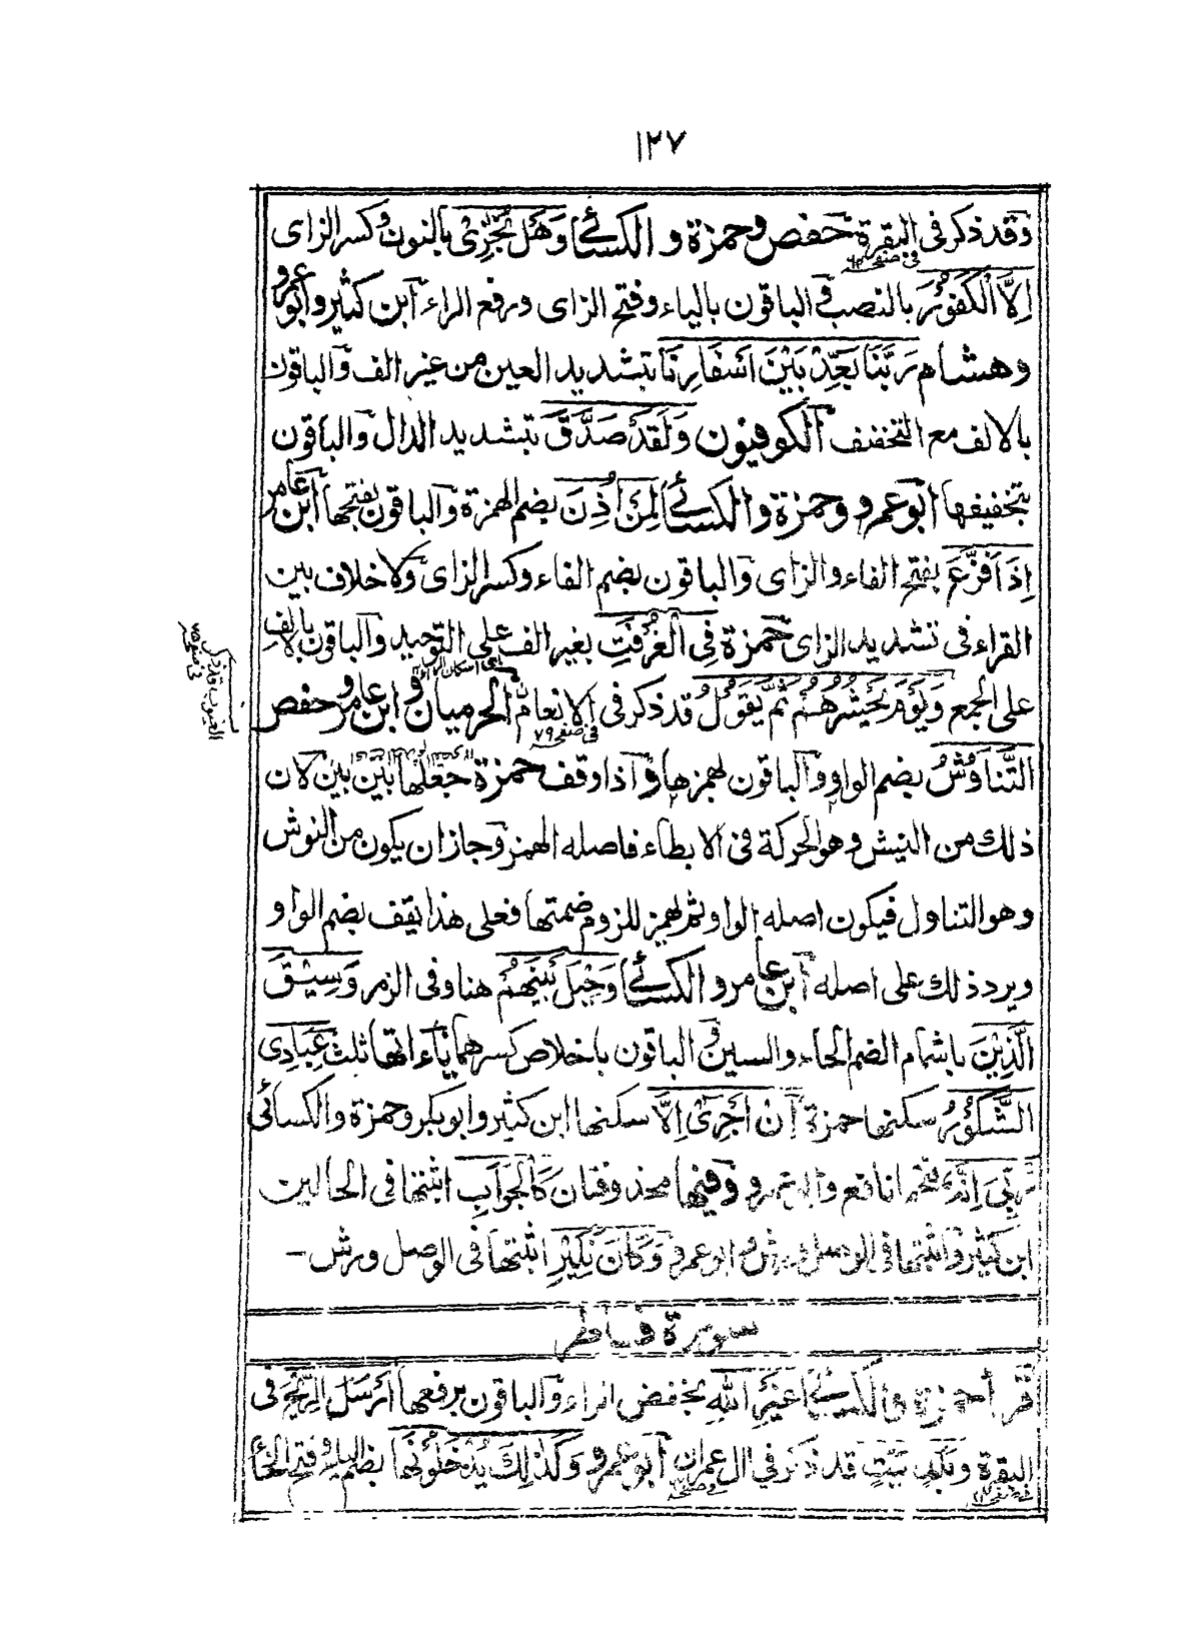 ١٢٧
وقد ذكر فى البقرة حفص وحمزة و الكسائى وَهَلْ نُجٰزِىْ بالنون وكسر الزاى
فى صفحه
اِلَّا الْكَفُوْرَ بالنصب و الباقون بالياء وفتح الزاى ورفع الراء ابن كثير وابو عمرو
وهشام رَبَّنَا بَعِّدْ بَيْنَ اَسْفَارِنَا بتشديد العين من غير الف والباقون
بالالف مع التخفيف الكوفيون وَلَقَدْ صَدَّقَ بتشديد الدال والباقون
بتخفيفها ابو عمرو وحمزة والكسائى لِمَنْ اُذِنَ بضم الهمزة والباقون بفتحها ابن عامر
اِذَا فَزَّعَ بفتح الفاء والزاى والباقون بضم الفاء وكسر الزاى ولا خلاف بين
القراء فى تشديد الزاى حمزة فِى الْغُرْفَتِ بغير الف على التوحيد والباقون بالالف
على الجمع وَيَوْمَ نَحْشُرُهُمْ ثُمَّ يَقُوْلُ قد ذكر فى الانعام الحرميان و ابن عامر وحفص
فى صفحه ٧٩
التَّنَاوُشُ بضم الواو والباقون بهمزها واذا وقف حمزة جعلها بين بين لان
ذلك من النيش وهو الحركة فى الابطاء فاصله الهمز وجاز ان يكون من النوش
وهو التناول فيكون اصله الواو ثم يهمز للزوم ضمتها فعلى هذا يقف بضم الواو
ويرد ذلك على اصله ابن عامر و الكسائى وَحِيْلَ بَيْنَهُمْ هنا وفى الزمر وَسِيْقَ
الَّذِيْنَ باشمام الضم الحاء والسين و الباقون باخلاص كسرهما ياءاتها ثلث عِبَادِىَ
الشَّكُوْرُ سكنها حمزة اِنْ اَجْرِىَ اِلَّا سكنها ابن كثير وابو بكر وحمزة والكسائى
رَبِّىَ اِنَّهٗ فتحها نافع وابو عمرو وفيها محذوفتان كَالْجَوَابِ اثبتها فى الحالين
ابن كثير واثبتها فى الوصل ورش و ابو عمرو وَكَانَ نَكِيْرِ اثبتها فى الوصل ورش –
سورة فاطر
قرأ حمزة والكسائى غَيْرِ اللّٰهِ بخفض الراء والباقون برفعها اَرْسَلَ الرِّيْحَ فى
البقرة وبَلَدٍ مَّيِّتٍ قد ذكر في ال عمران ابو عمرو وَكَذٰلِكَ يُدْخَلُوْنَهَا بضم الياء وفتح الخاء